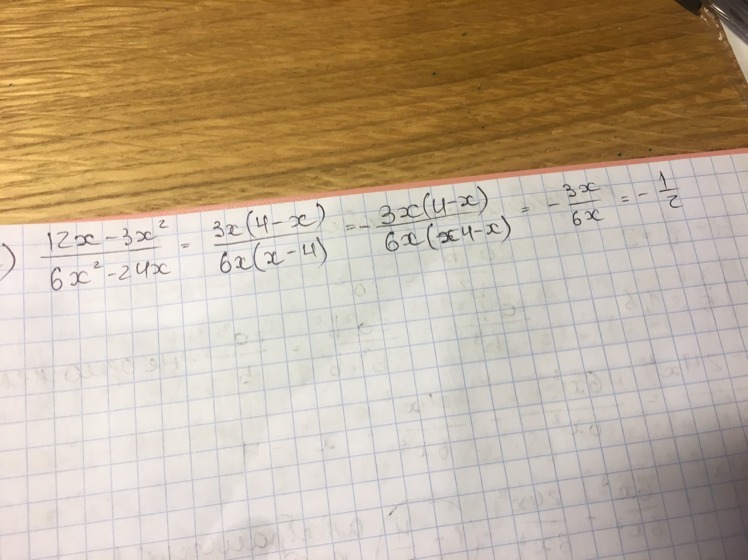 ) (12x - 3x²)/(6x² - 24x) = 3x(4 - x)/6x(x - 4) = - 3x(4 - x)/6x(x4 - x) = - 3x/6x = - 1/2